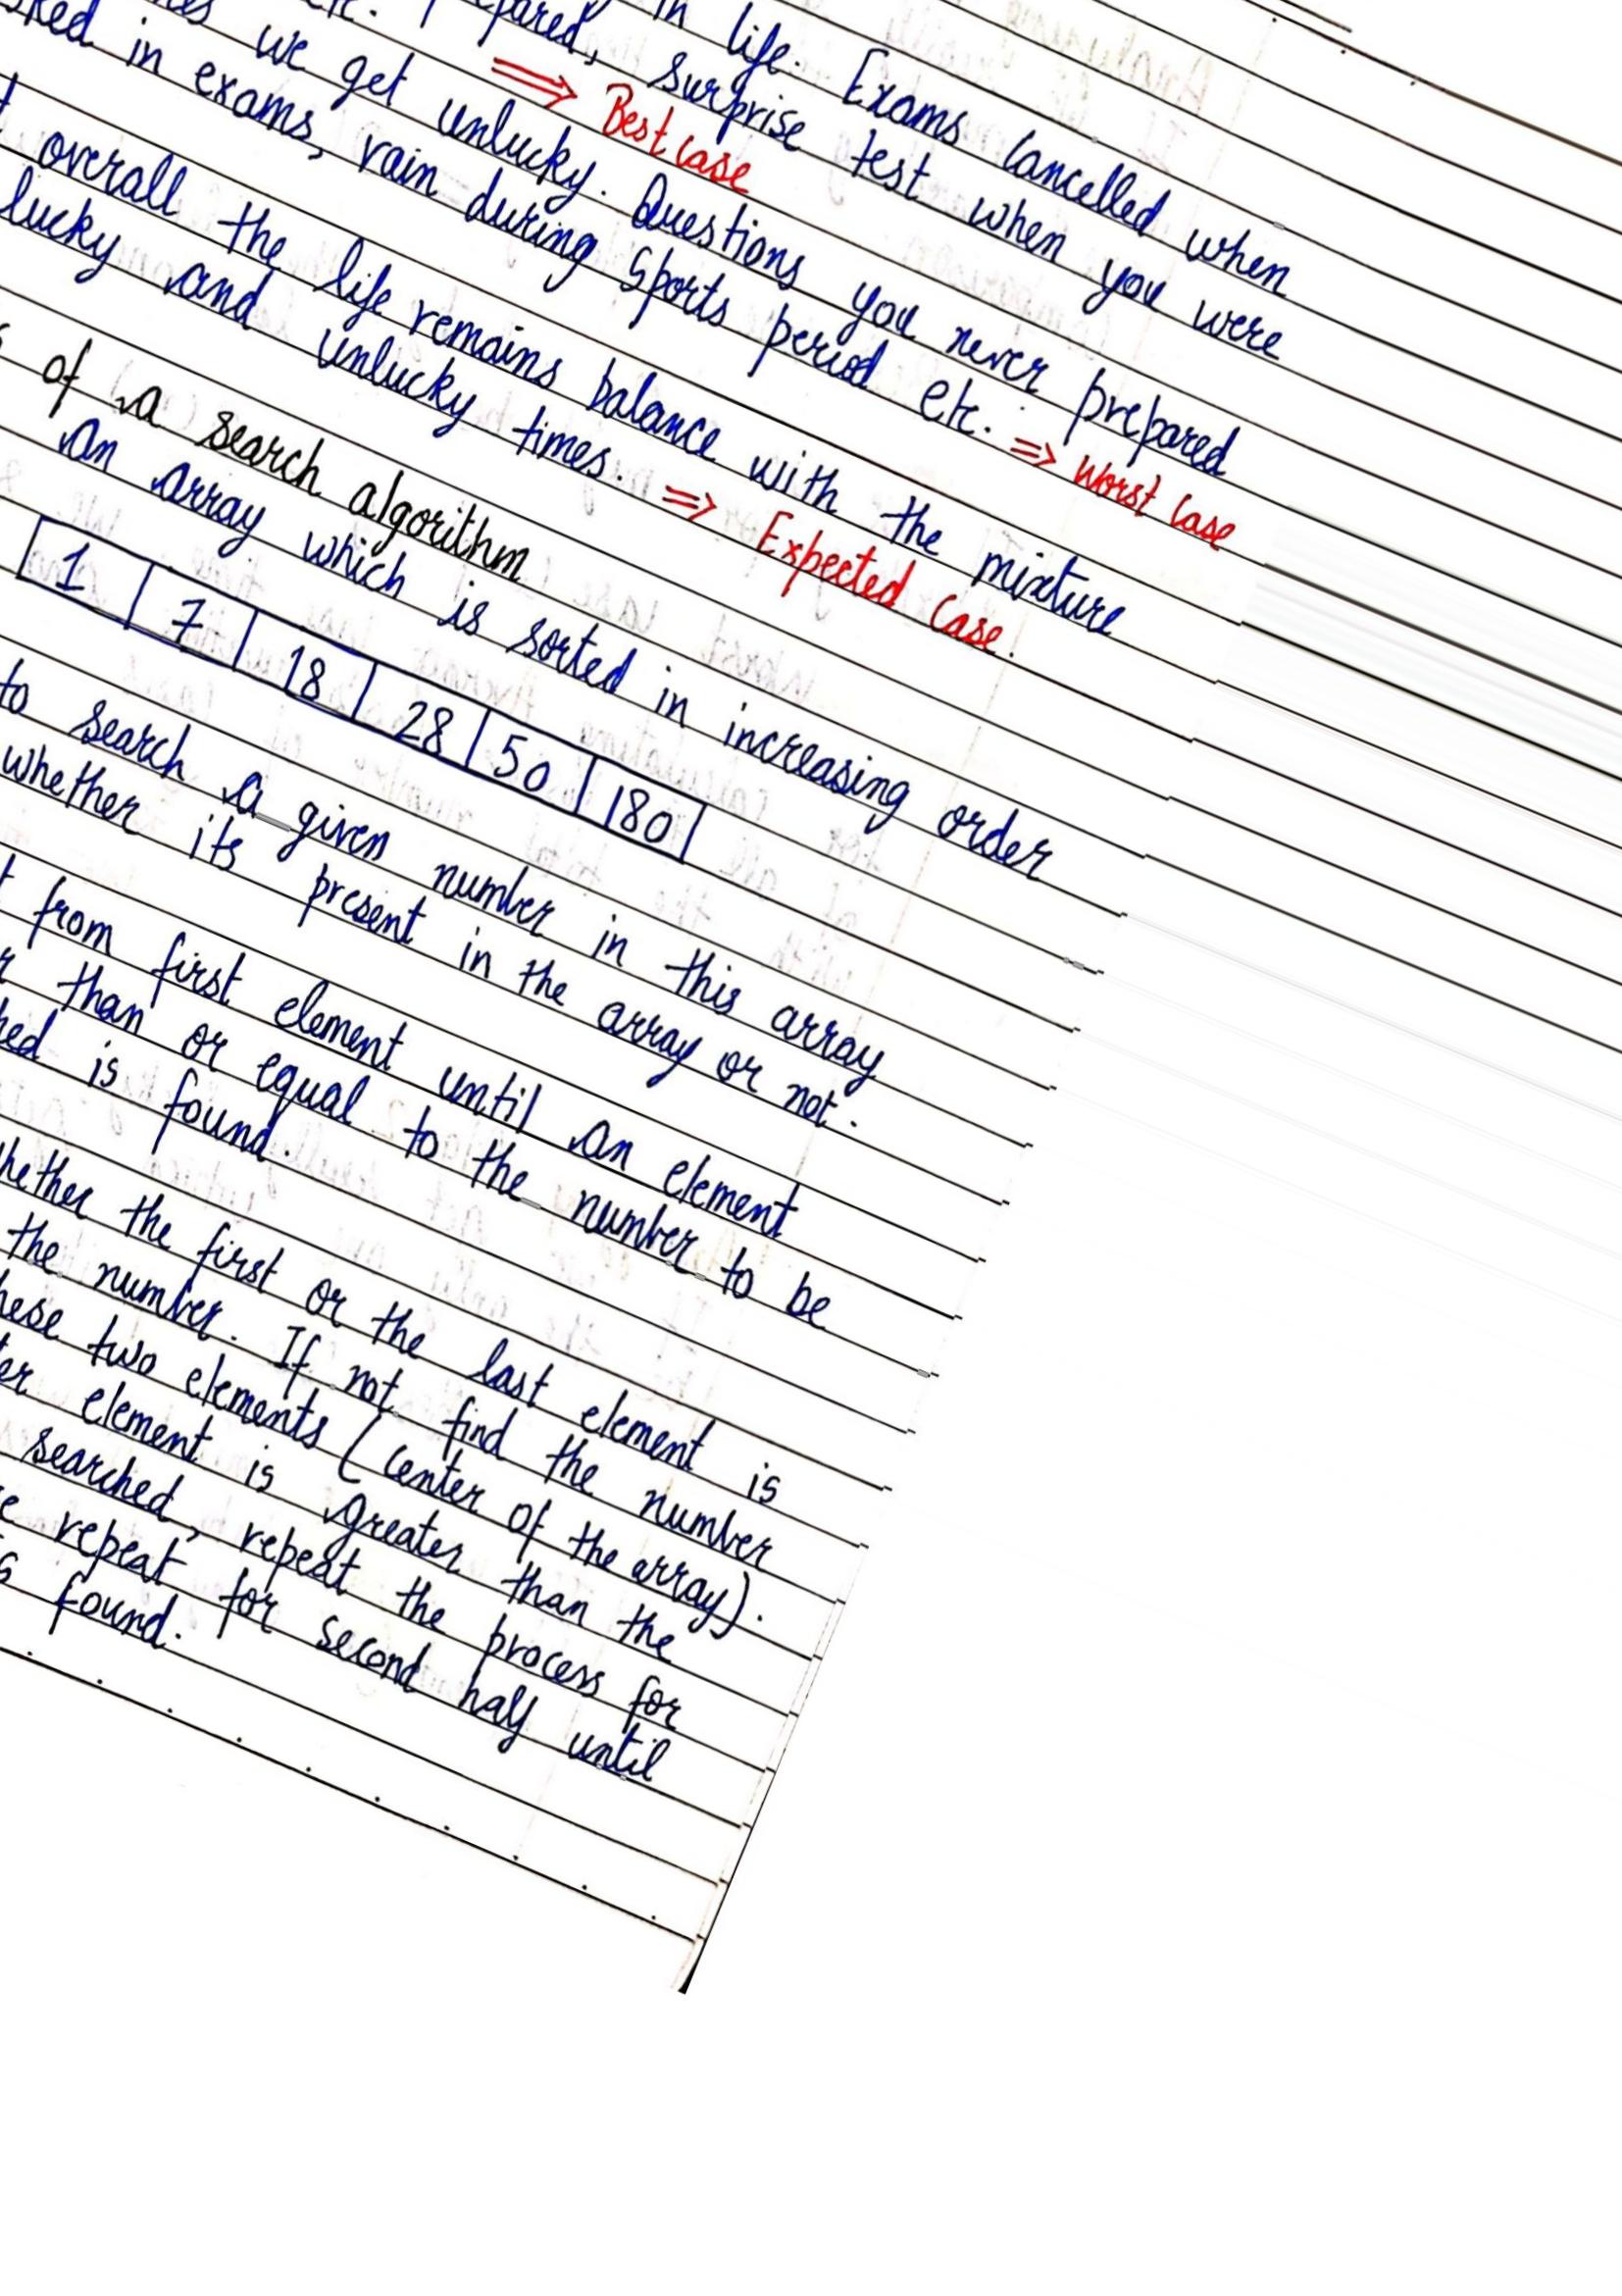 in life. Exams cancelled when
prepared, surprise test when you were
etc. ⟹ Best case
we get unlucky. Questions you never prepared
in exams, rain during sports period etc. ⇒ Worst Case
overall the life remains balance with the mixture
lucky and unlucky times. ⇒ Expected Case.
of a search algorithm
an array which is sorted in increasing order
1 7 18 28 50 180
to search a given number in this array
whether its present in the array or not.
from first element until an element
than or equal to the number to be
is found.
whether the first or the last element is
the number. If not find the number
these two elements (center of the array).
element is greater than the
searched, repeat the process for
repeat for second half until
found.